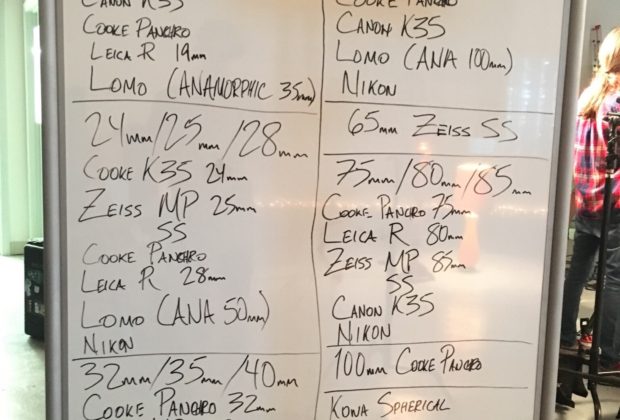 CANON K35
COOKE PANCHRO
LEICA R 19mm
LOMO (ANAMORPHIC 35mm)
24mm/25mm/28mm
COOKE K35 24mm
ZEISS MP 25mm
SS
COOKE PANCHRO
LEICA R 28mm
LOMO (ANA 50mm)
NIKON
32mm/35mm/40mm
COOKE PANCHRO 32mm
COOKE PANCHRO
CANON K35
LOMO (ANA 100mm)
NIKON
65mm ZEISS SS
75mm/80mm/85mm
COOKE PANCRO 75mm
LEICA R 80mm
ZEISS MP 85mm
SS
CANON K35
NIKON
100mm COOKE PANCRO
KOWA SPHERICAL